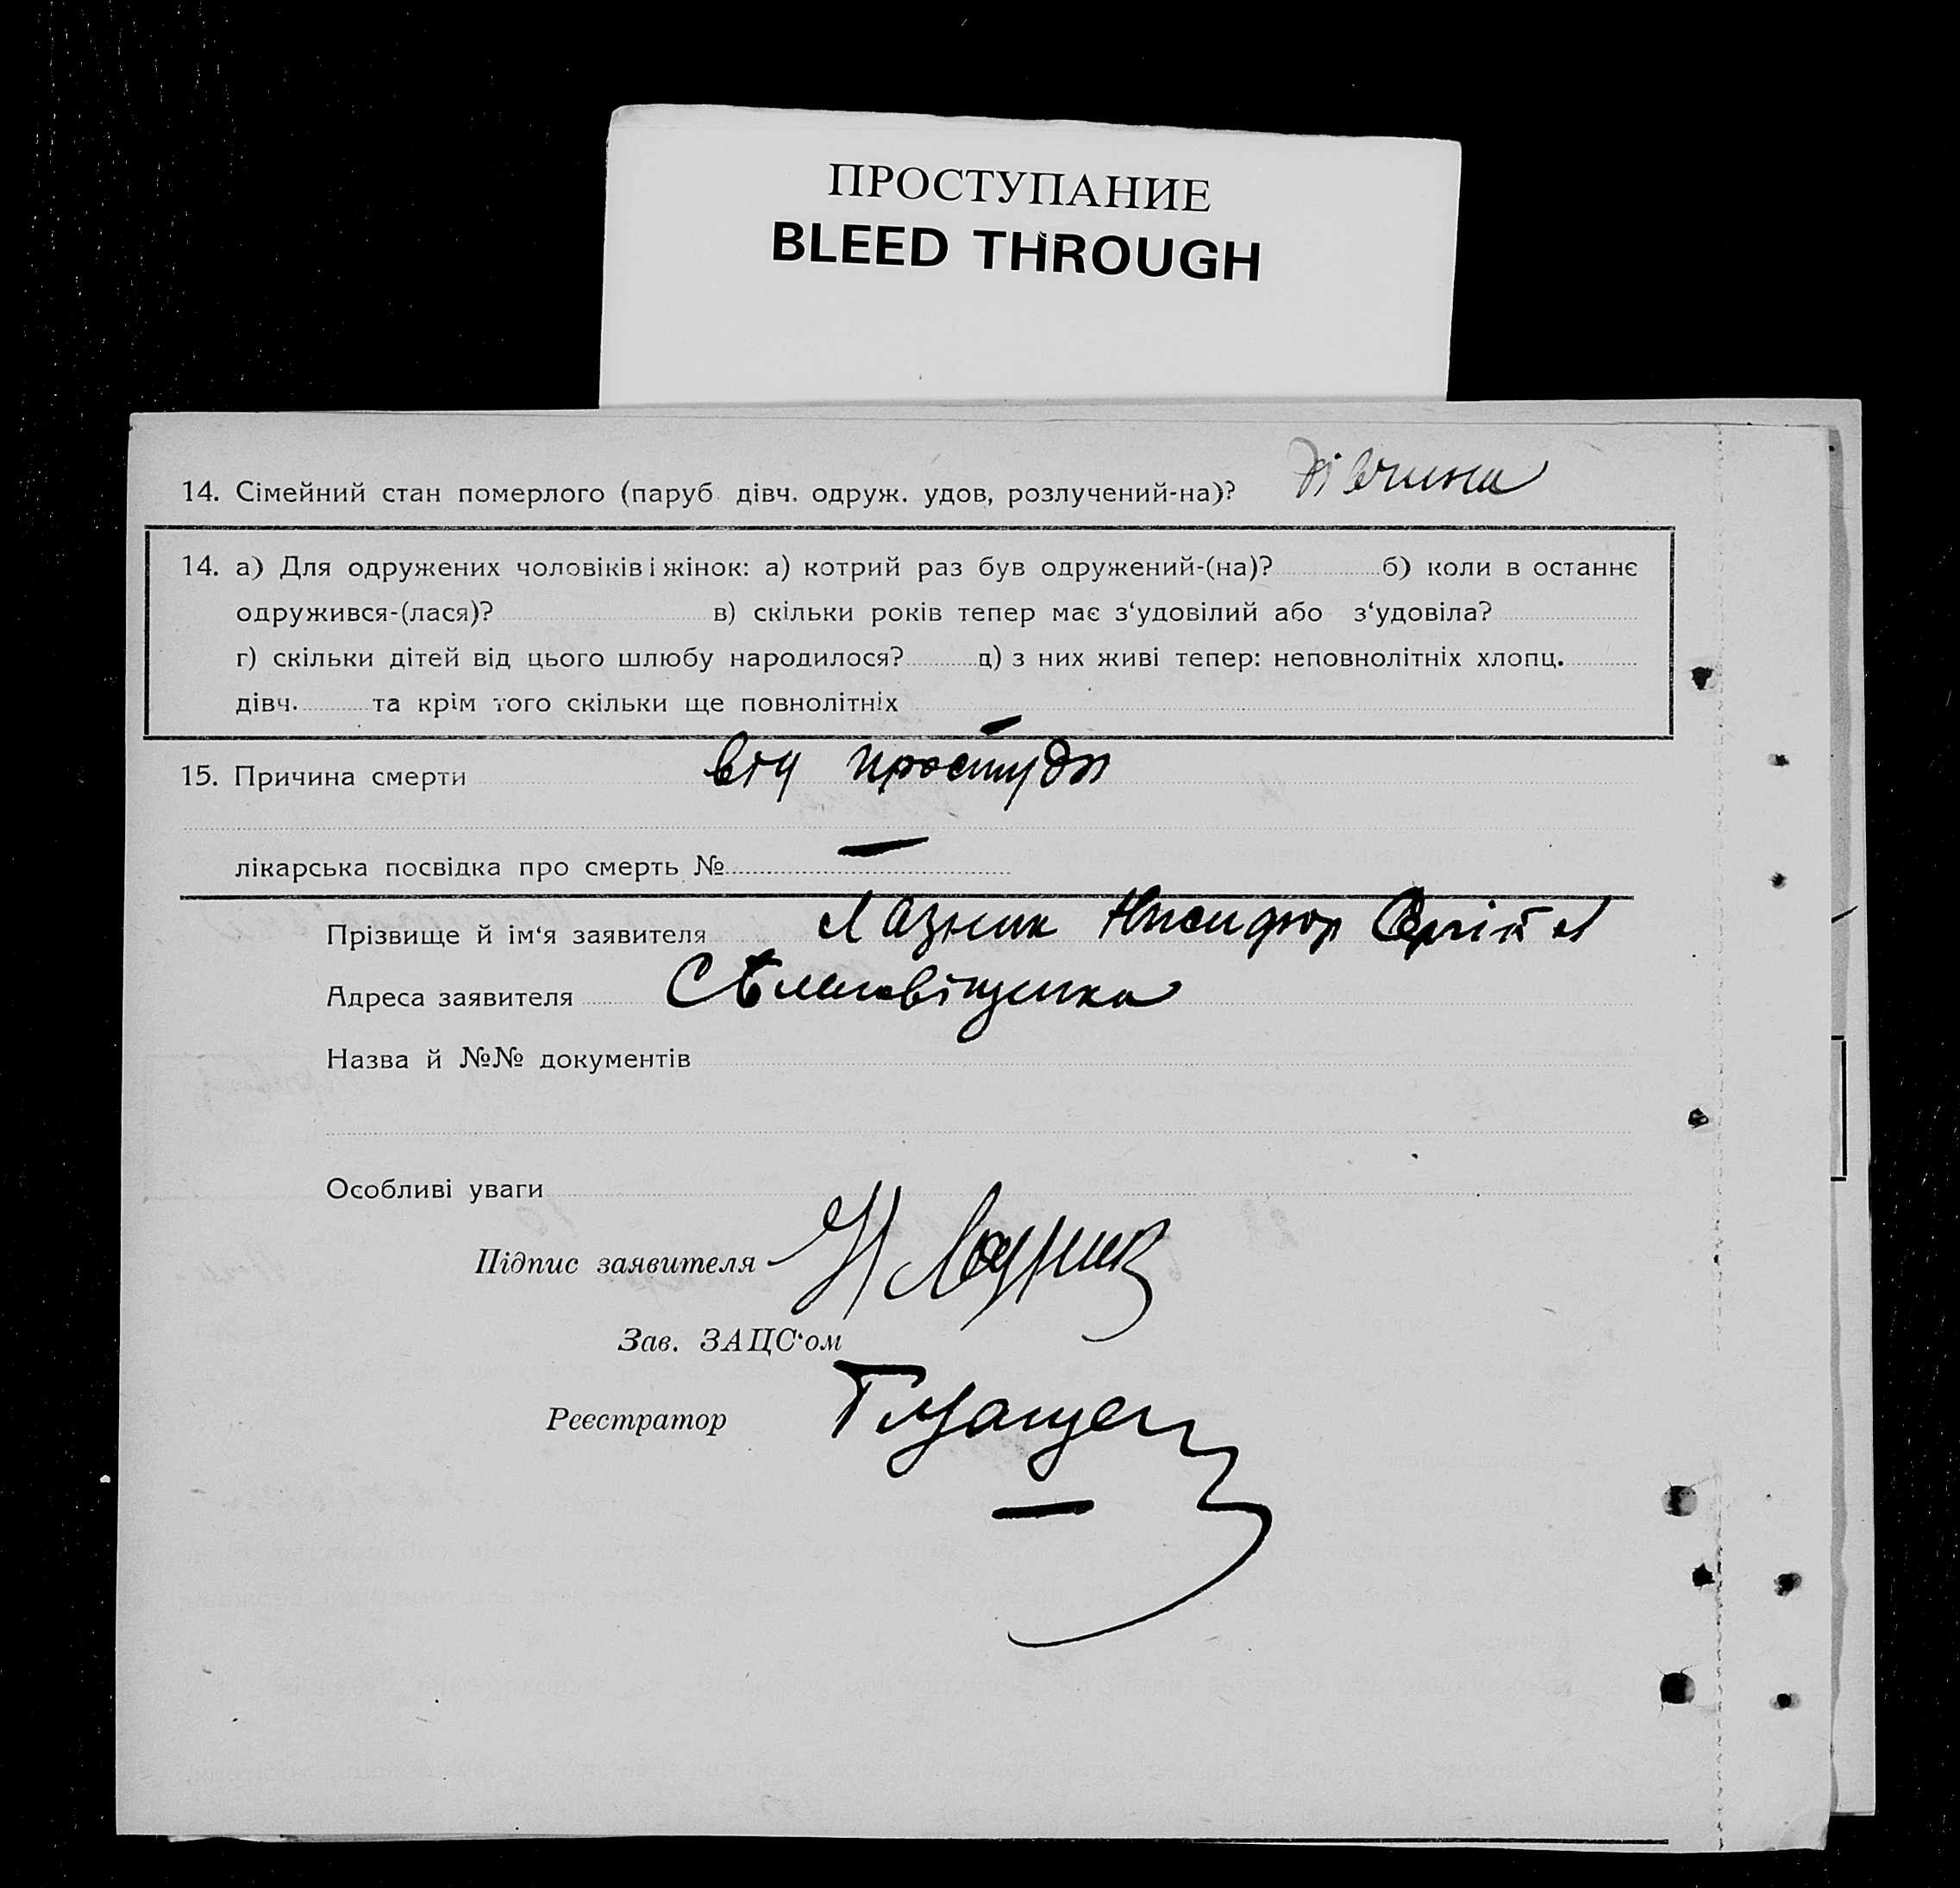 ПРОСТУПАНИЕ
BLEED THROUGH
14. Сімейний стан померлого (паруб дівч. одруж. удов, розлучений-на)? дівчина
14. а) Для одружених чоловіків і жінок: а) котрий раз був одружений-(на)? б) коли в останнє
одружився-(лася)? в) скільки років тепер має з‘удовілий або з‘удовіла?
г) скільки дітей від цього шлюбу народилося? д) з них живі тепер: неповнолітніх хлопц.
дівч. та крім того скільки ще повнолітніх —
15. Причина смерти від простуди
лікарська посвідка про смерть № —
Прізвище й ім‘я заявителя Лазник Никифор
Адреса заявителя
Назва й №№ документів
Особливі уваги
Підпис заявителя Н Лазник
Зав. ЗАЦС‘ом
Реєстратор